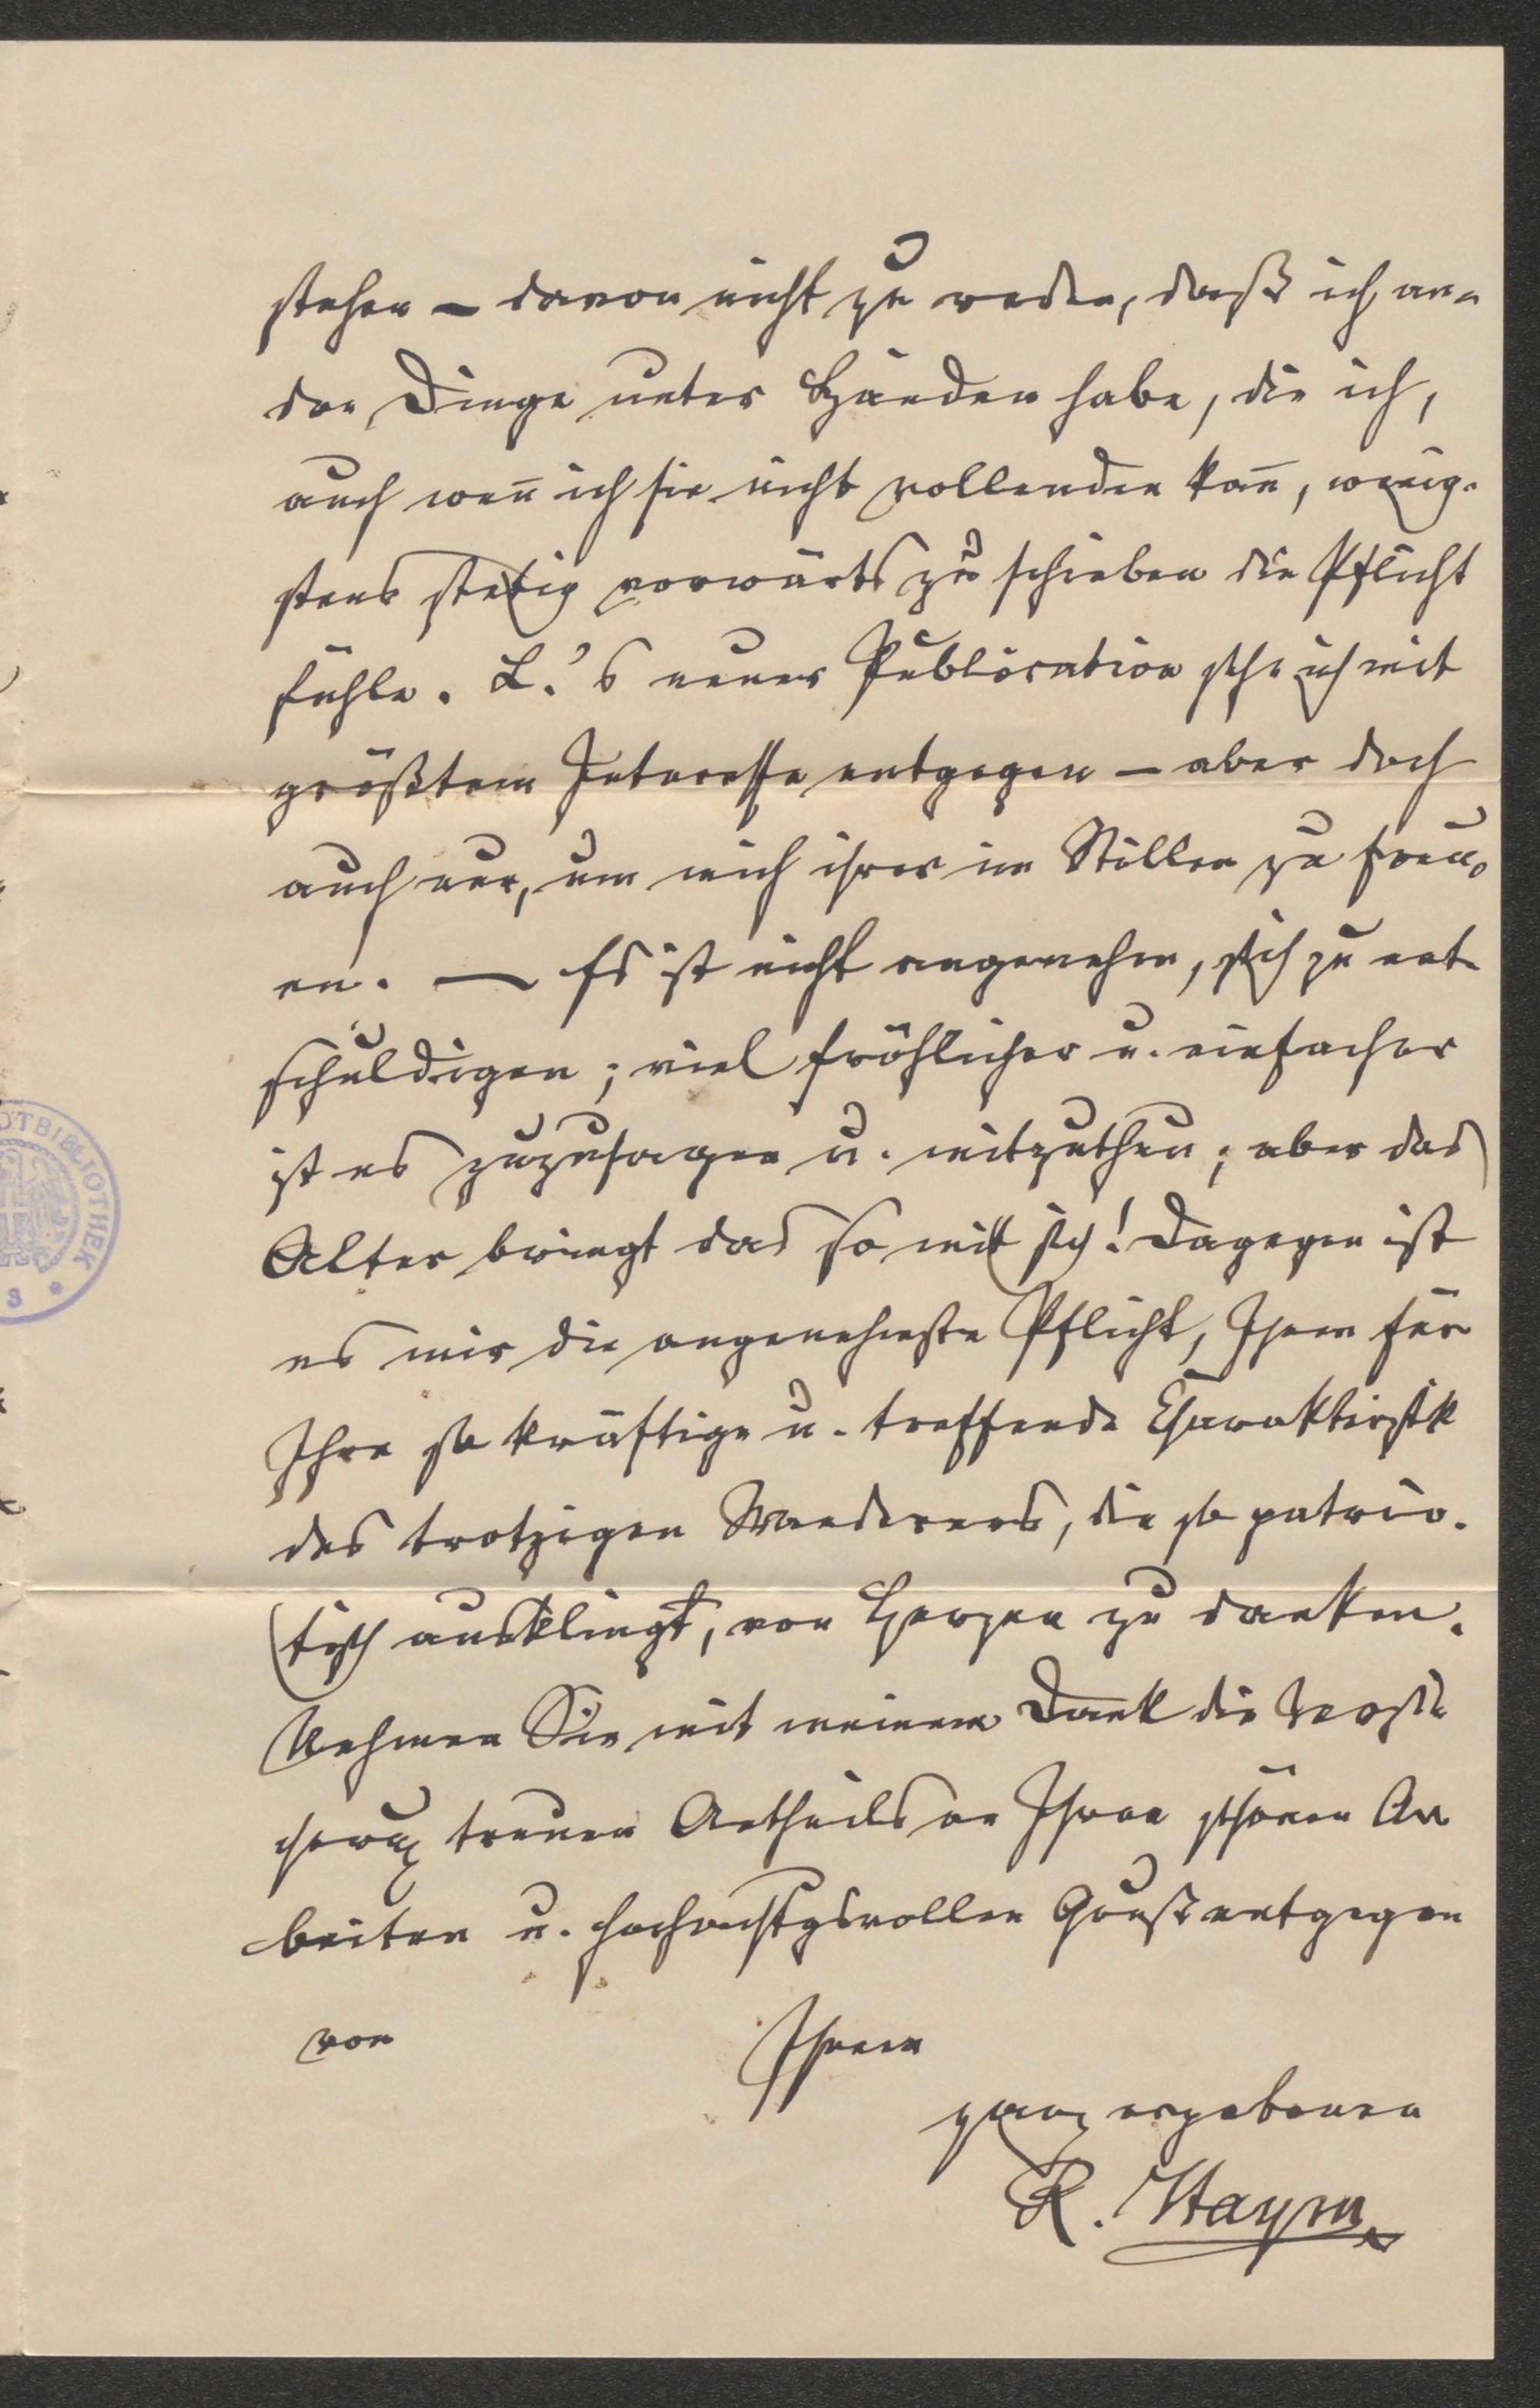 stehen – davon nicht zu reden, daß ich an-
dre Dinge unter Händen habe, die ich,
auch wen̄ ich sie nicht vollenden kan̄, wenig-
stens stetig vorwärts zu schieben die Pflicht
fühle. L.'s neuer Publication sehe ich mit
größtem Interesse entgegen – aber doch
auch nur, um mich ihrer im Stillen zu freu-
en. — Es ist nicht angenehm, sich zu ent-
schuldigen; viel fröhlicher u. einfacher
ist es zuzusagen u. mitzuthun; aber das
Alter bringt das so mit sich! Dagegen ist
es mir die angenehmste Pflicht, Ihnen für
Ihre so kräftige u. treffende Charakteristik
des trotzigen Wanderers, die so patrio-
tisch ausklingt, von Herzen zu danken.
Nehmen Sie mit meinem Dank die Versi-
cherung treuen Antheils an Ihren schönen Ar
beiten u. hochachtgsvollen Gruß entgegen
von Ihrem
ganz ergebenen
R. Haym
DTBIBLIOTHEK
S